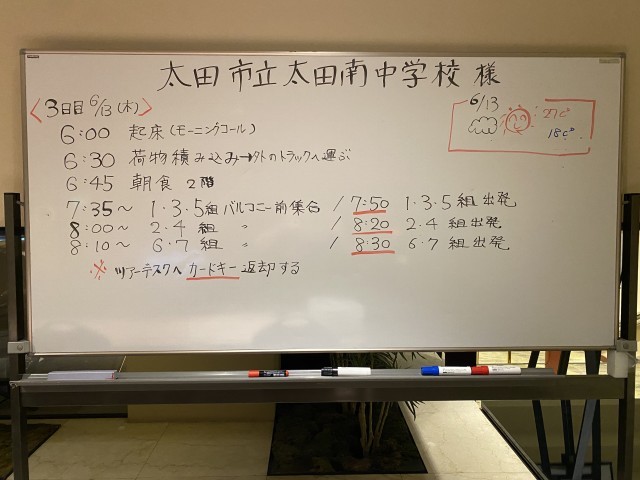 太田市立太田南中学校 様
〈3日目 6/13(木)〉
6/13
27c°
18c°
6:00 起床(モーニングコール)
6:30 荷物積み込み→外のトラックへ運ぶ
6:45 朝食 2階
7:35～ 1・3・5組 バルコニー前集合 / 7:50 1・3・5組出発
8:00～ 2・4 組 〃 / 8:20 2・4 組出発
8:10～ 6・7 組 〃 / 8:30 6・7 組出発
※ ツアーデスクへ カードキー返却する